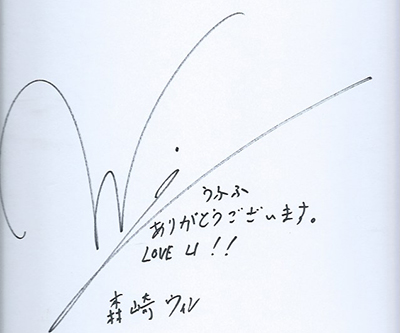 Win
うふふ
ありがとうございます。
LOVE U!!
森崎ウィン